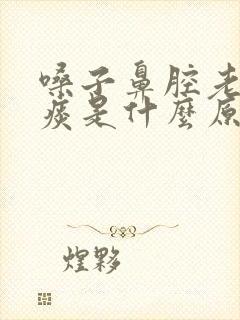 嗓子鼻腔老
痰是什麼原
煌夥